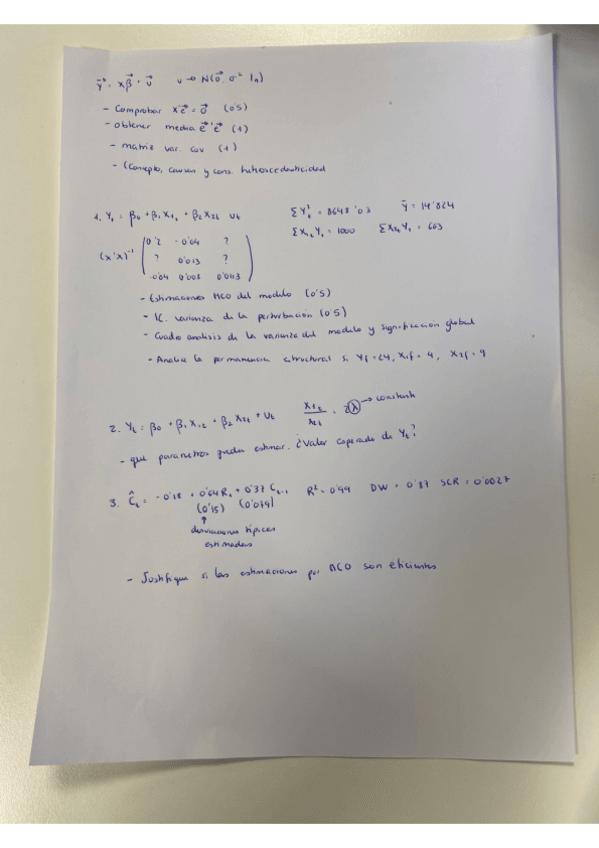 ȳ = xβ⃗ + u⃗    u → N(0⃗, σ² In)
- Comprobar x'e⃗ = 0⃗ (0'5)
- obtener media e⃗'e⃗ (1)
- matriz var. cov (1)
- (Concepto, causas y cons. heteroscedasticidad
1. Yt = β0 + β1 X1t + β2 X2t Ut    ΣYt² = 8648'03    ȳ = 14'824
ΣX1t Yt = 1000    ΣX2t Yt = 603
(x'x)⁻¹ ( 0'2   -0'04   ?
?   0'013   ?
-0'04   0'008   0'003 )
- Estimaciones MCO del modelo (0'5)
- IC. varianza de la perturbación (0'5)
- Cuadro analisis de la varianza del modelo y significación global
- Analice la permanencia estructural si Yf = 24, X1f = 4, X2f = 9
2. Yt = β0 + β1 X1t + β2 X2t + Ut    → constante
- que parametros puedes estimar. ¿Valor esperado de Yt?
3. Ĉt = -0'18 + 0'64 Rt + 0'37 Ct-1    R² = 0'99    DW = 0'87    SCR = 0'0027
(0'15)   (0'079)
↑
desviaciones típicas
estimadas
- Justifique si las estimaciones por MCO son eficientes